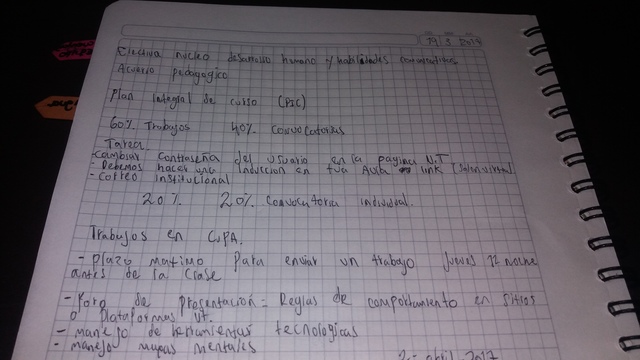 Electiva nucleo desarrollo humano y habilidades comunicativas
Acuerdo pedagogico
Plan Integral de curso (PIC)
60% Trabajos 40% Convocatorias
Tarea
-Cambiar contraseña del usuario en la pagina U.T
- Debemos hacer una Induccion en tua Aula link
- Correo Institucional
20% 20% Convocatoria individual.
Trabajos en CIPA.
- plazo maximo para enviar un trabajo jueves 12 noche
antes de la clase
- Foro de presentación = Reglas de comportamiento en sitios
o Plataformas UT.
- manejo de herramientas tecnologicas
- manejo mapas mentales
abril - 2017